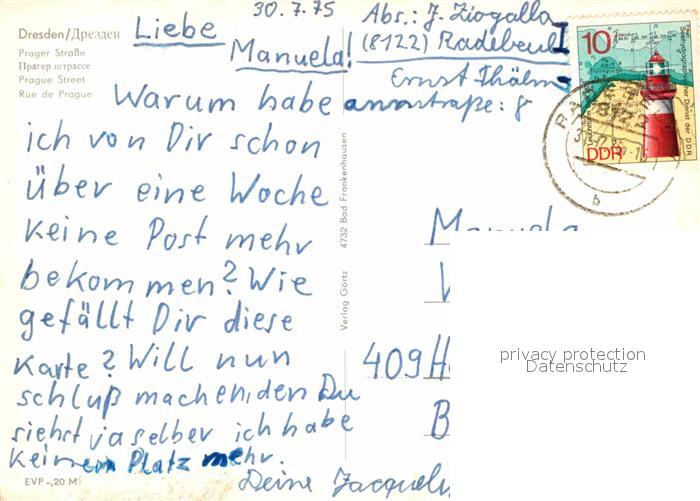 30.7.75
Dresden/Дрезден
Prager Straße
Прагер штрассе
Prague Street
Rue de Prague
Liebe
Manuela!
Warum habe
ich von Dir schon
über eine Woche
keine Post mehr
bekommen? Wie
gefällt Dir diese
Karte? Will nun
schluß machen, den Du
siehst ja selber ich habe
keinem Platz mehr.
Deine Jacquel
EVP -,20 M
Verlag Görtz 4732 Bad Frankenhausen
Abs.: J. Ziogalla
(8122) Radebeul I
Ernst Thälm
annstraße: 8
10
DDR
Seehydrographischer Dienst der DDR
Manuela
409 H
B
privacy protection
Datenschutz